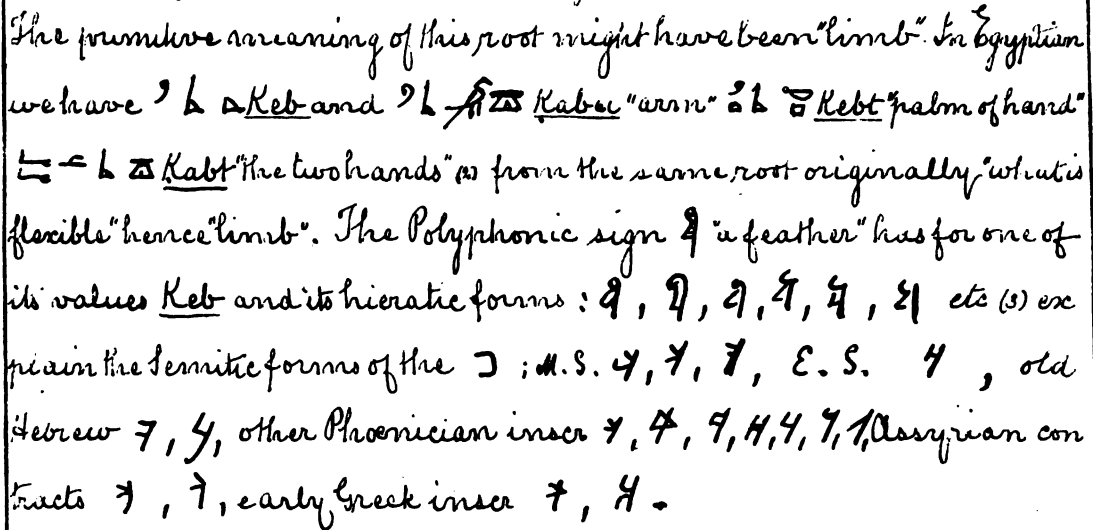 The primitive meaning of this root might have been "limb". In Egyptian
we have Keb and Kabu "arm" Kebt "palm of hand"
Kabt "the two hands" (2) from the same root originally, "what is
flexible" hence "limb". The Polyphonic sign "a feather" has for one of
its values Keb and its hieratic forms : , , , , , etc (3) ex
plain the Semitic forms of the כ ; M. S. , , , E. S. , old
Hebrew , , other Phœnician inscr , , , , , , , Assyrian con
tracts , , early Greek inscr , .